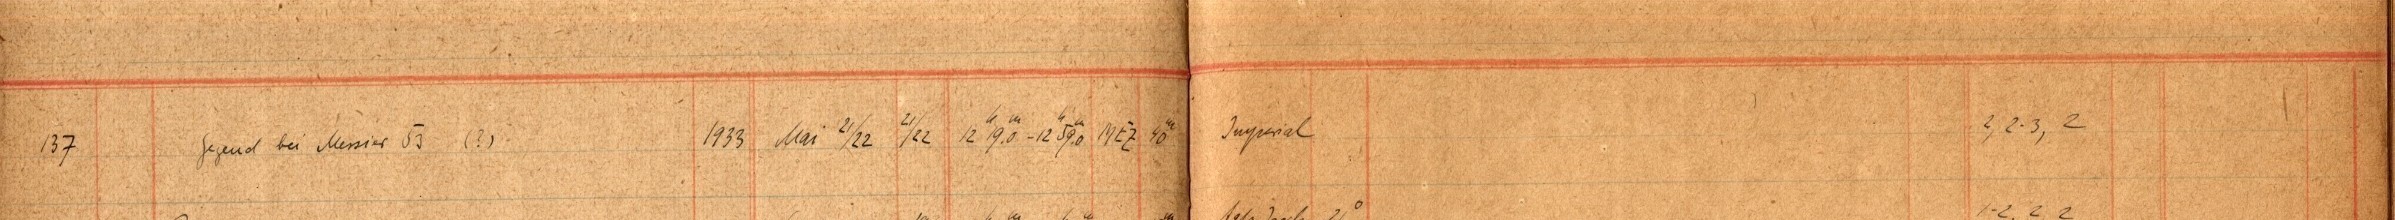 137 Gegend bei Messier 53 (?) 1933 Mai 21/22 21/22 12ʰ19.0ᵐ - 12ʰ59.0ᵐ MEZ 40ᵐ Imperial 2, 2-3, 2
21° 1-2, 2, 2